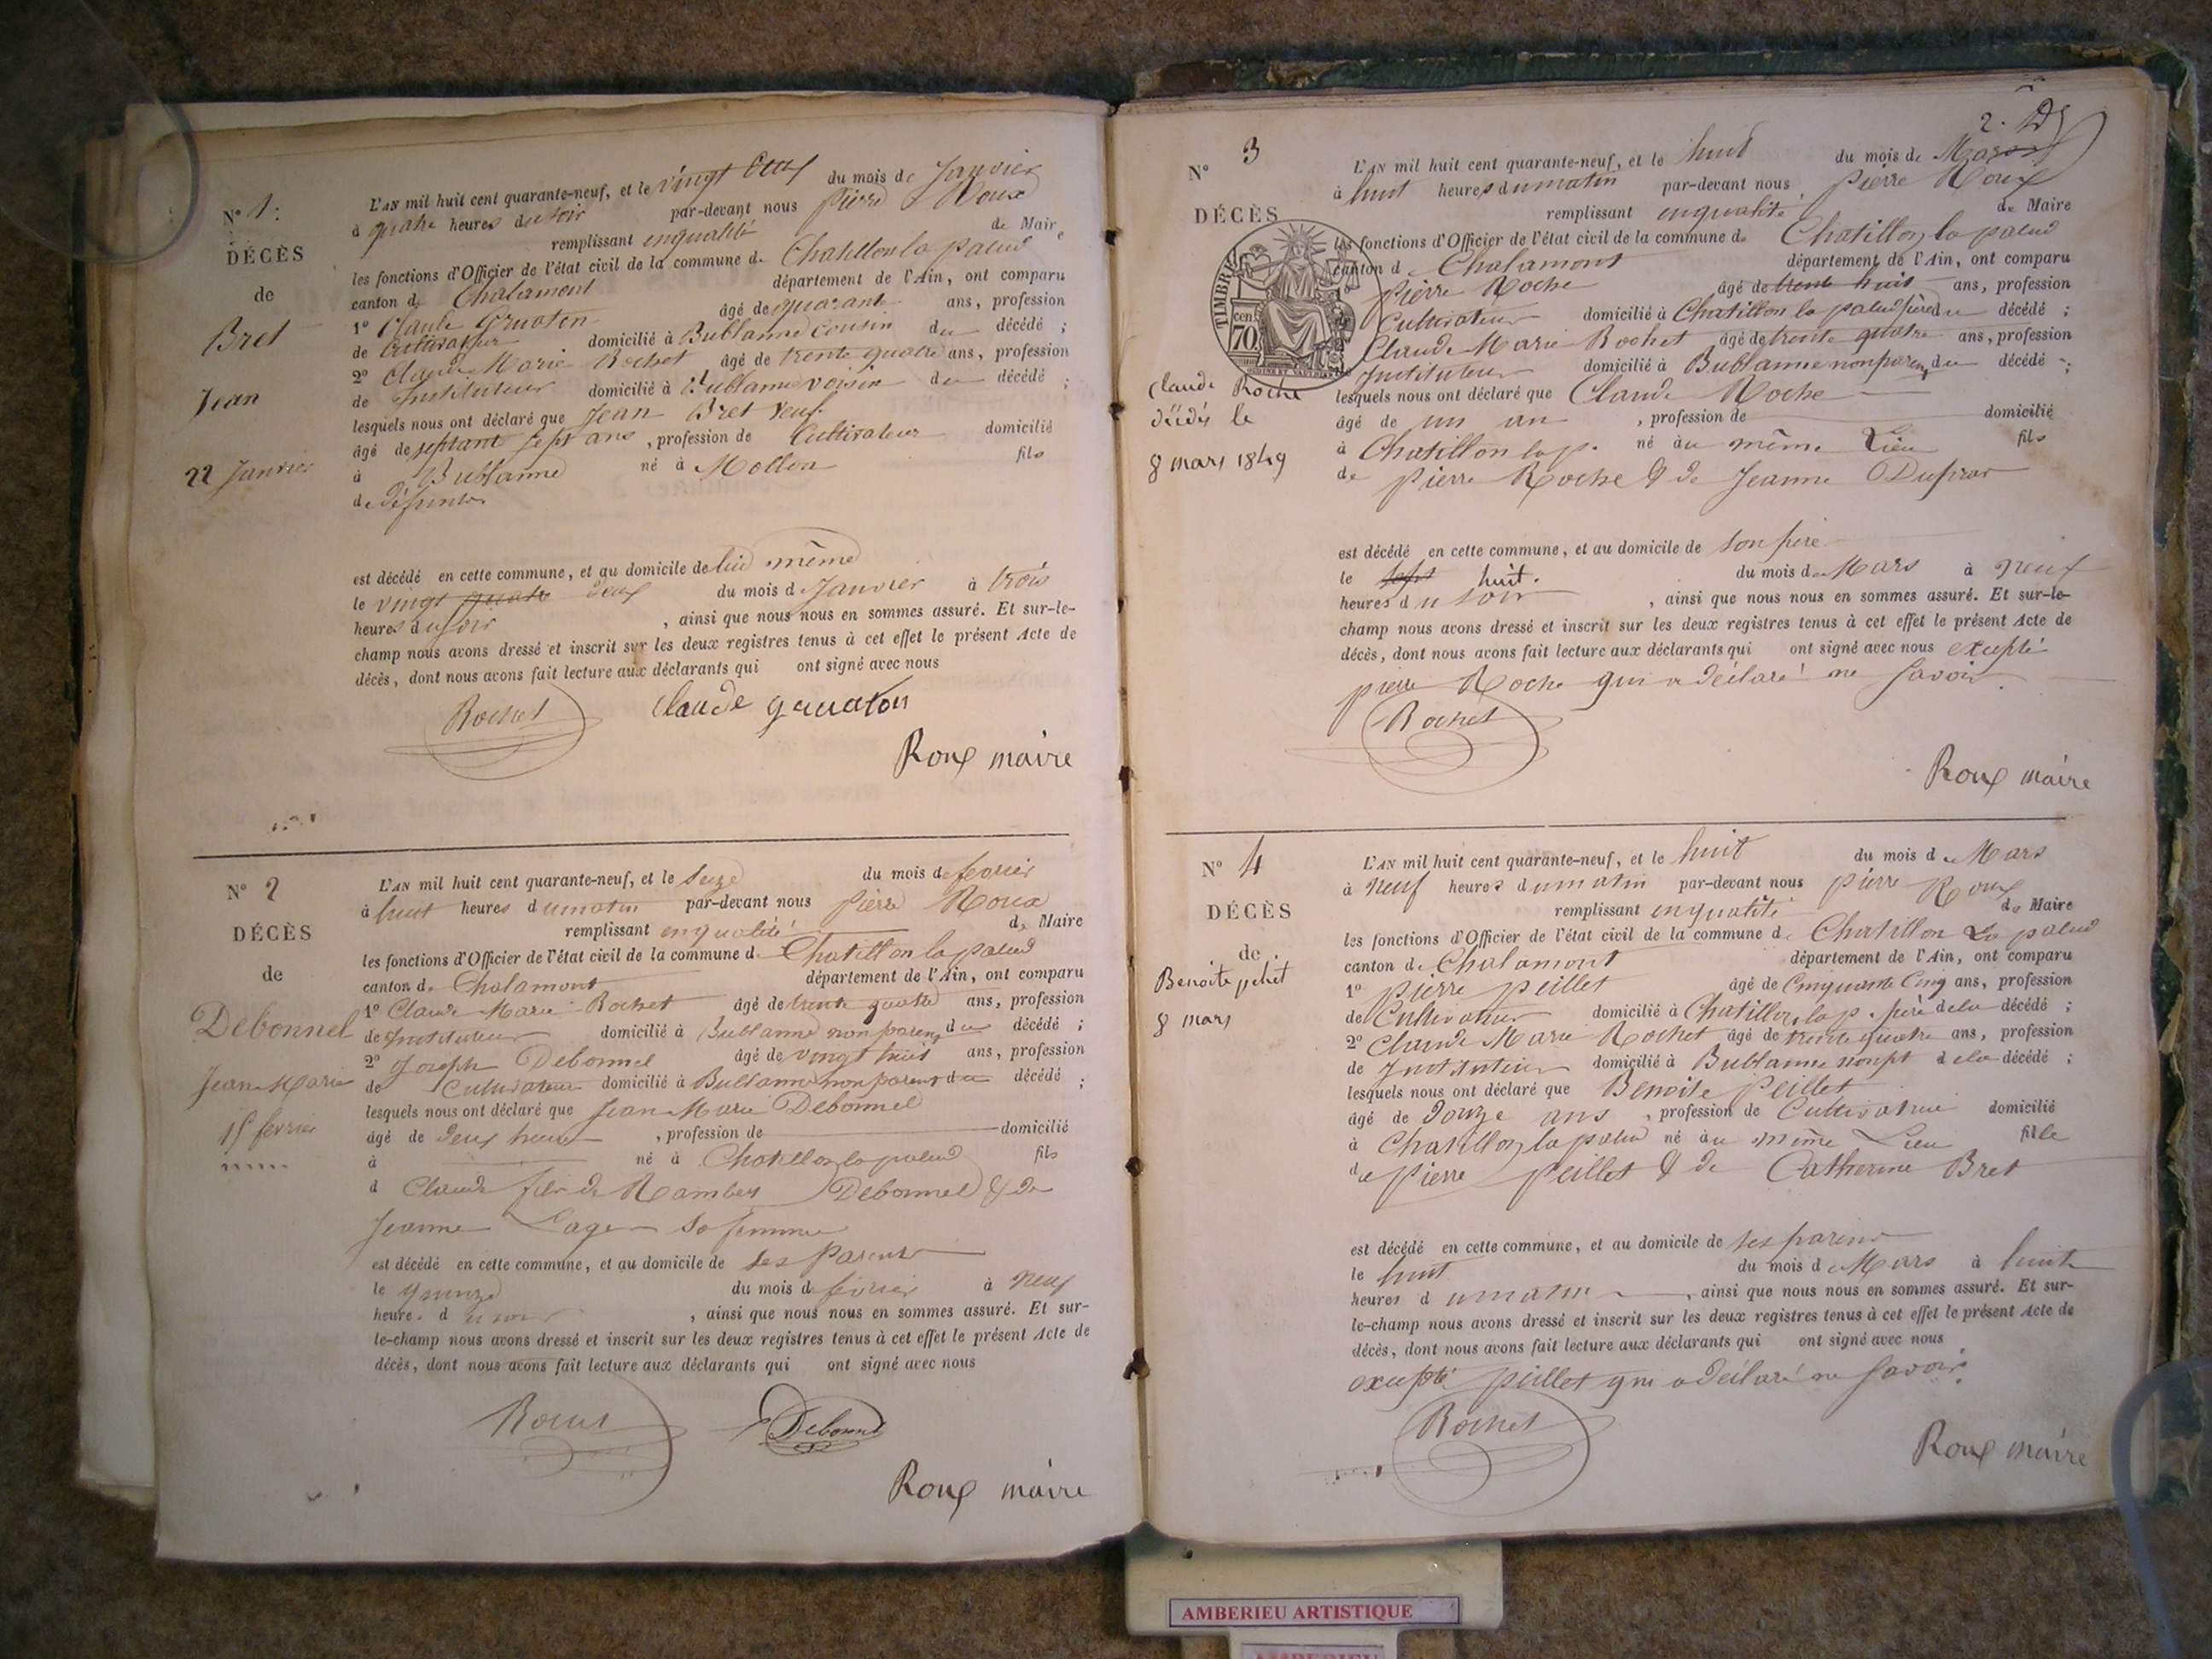 N° 1.
DÉCÈS
de
Bret
Jean
22 Janvier
L'AN mil huit cent quarante-neuf, et le vingt deux du mois de Janvier
à quatre heures du soir par-devant nous Pierre Roux
remplissant en qualité de Maire
les fonctions d'Officier de l'état civil de la commune de Chatillon la palud
canton de Chalamont département de l'Ain, ont comparu
1° Claude Gruaton âgé de quarante ans, profession
de Cultivateur domicilié à Bublanne cousin du décédé ;
2° Claude Marie Rochet âgé de trente quatre ans, profession
de Instituteur domicilié à Bublanne voisin du décédé ;
lesquels nous ont déclaré que Jean Bret veuf
âgé de septante sept ans , profession de Cultivateur domicilié
à Bublanne né à Mollon fils
de défunts
est décédé en cette commune, et au domicile de lui même
le vingt quatre deux du mois de Janvier à trois
heures du soir , ainsi que nous nous en sommes assuré. Et sur-le-
champ nous avons dressé et inscrit sur les deux registres tenus à cet effet le présent Acte de
décès, dont nous avons fait lecture aux déclarants qui ont signé avec nous
Rochet Claude gruaton
Roux maire
N° 2
DÉCÈS
de
Debonnel
Jean Marie
15 fevrier
L'AN mil huit cent quarante-neuf, et le seize du mois de fevrier
à huit heures du matin par-devant nous Pierre Roux
remplissant en qualité de Maire
les fonctions d'Officier de l'état civil de la commune de Chatillon la palud
canton de Chalamont département de l'Ain, ont comparu
1° Claude Marie Rochet âgé de trente quatre ans, profession
de Instituteur domicilié à Bublanne non parent du décédé ;
2° Joseph Debonnel âgé de vingt huit ans, profession
de Cultivateur domicilié à Bublanne non parent du décédé ;
lesquels nous ont déclaré que Jean Marie Debonnel
âgé de deux heures , profession de domicilié
à né à Chatillon la palud fils
d Claude fils de Rambert Debonnel & de
Jeanne Lager sa femme
est décédé en cette commune, et au domicile de ses parents
le quinze du mois de fevrier à neuf
heures du soir , ainsi que nous nous en sommes assuré. Et sur-
le-champ nous avons dressé et inscrit sur les deux registres tenus à cet effet le présent Acte de
décès, dont nous avons fait lecture aux déclarants qui ont signé avec nous
Rochet Debonnel
Roux maire
2.
N° 3
DÉCÈS
TIMBRE
cen. 70
Claude Roche
décédé le
8 mars 1849
L'AN mil huit cent quarante-neuf, et le huit du mois de Mars
à huit heures du matin par-devant nous Pierre Roux
remplissant en qualité de Maire
les fonctions d'Officier de l'état civil de la commune de Chatillon la palud
canton de Chalamont département de l'Ain, ont comparu
Pierre Roche âgé de trente huit ans, profession
Cultivateur domicilié à Chatillon la palud père du décédé ;
Claude Marie Rochet âgé de trente quatre ans, profession
Instituteur domicilié à Bublanne non parent du décédé ;
lesquels nous ont déclaré que Claude Roche
âgé de un an , profession de domicilié
à Chatillon la p. né au même Lieu fils
de Pierre Roche & de Jeanne Dupras
est décédé en cette commune, et au domicile de son père
le sept huit. du mois de Mars à neuf
heures du soir , ainsi que nous nous en sommes assuré. Et sur-le-
champ nous avons dressé et inscrit sur les deux registres tenus à cet effet le présent Acte de
décès, dont nous avons fait lecture aux déclarants qui ont signé avec nous excepté
pierre Roche qui a déclaré ne savoir.
Rochet
Roux maire
N° 4
DÉCÈS
de
Benoite peliet
8 mars
L'AN mil huit cent quarante-neuf, et le huit du mois de Mars
à neuf heures du matin par-devant nous pierre Roux
remplissant en qualité de Maire
les fonctions d'Officier de l'état civil de la commune de Chatillon La palud
canton de Chalamont département de l'Ain, ont comparu
1° Pierre peillet âgé de Cinquante Cinq ans, profession
de Cultivateur domicilié à Chatillon la p. père de la décédé ;
2° Claude Marie Rochet âgé de trente quatre ans, profession
de Instituteur domicilié à Bublanne non pt de la décédé ;
lesquels nous ont déclaré que Benoite Peillet
âgé de douze ans , profession de Cultivatrice domicilié
à Chatillon la palud né au même Lieu fille
de Pierre Peillet & de Catherine Bret
est décédé en cette commune, et au domicile de ses parents
le huit du mois de Mars à huit
heures du matin , ainsi que nous nous en sommes assuré. Et sur-
le-champ nous avons dressé et inscrit sur les deux registres tenus à cet effet le présent Acte de
décès, dont nous avons fait lecture aux déclarants qui ont signé avec nous
excepté peillet qui a déclaré ne savoir.
Rochet
Roux maire
AMBERIEU ARTISTIQUE
AMBERIEU